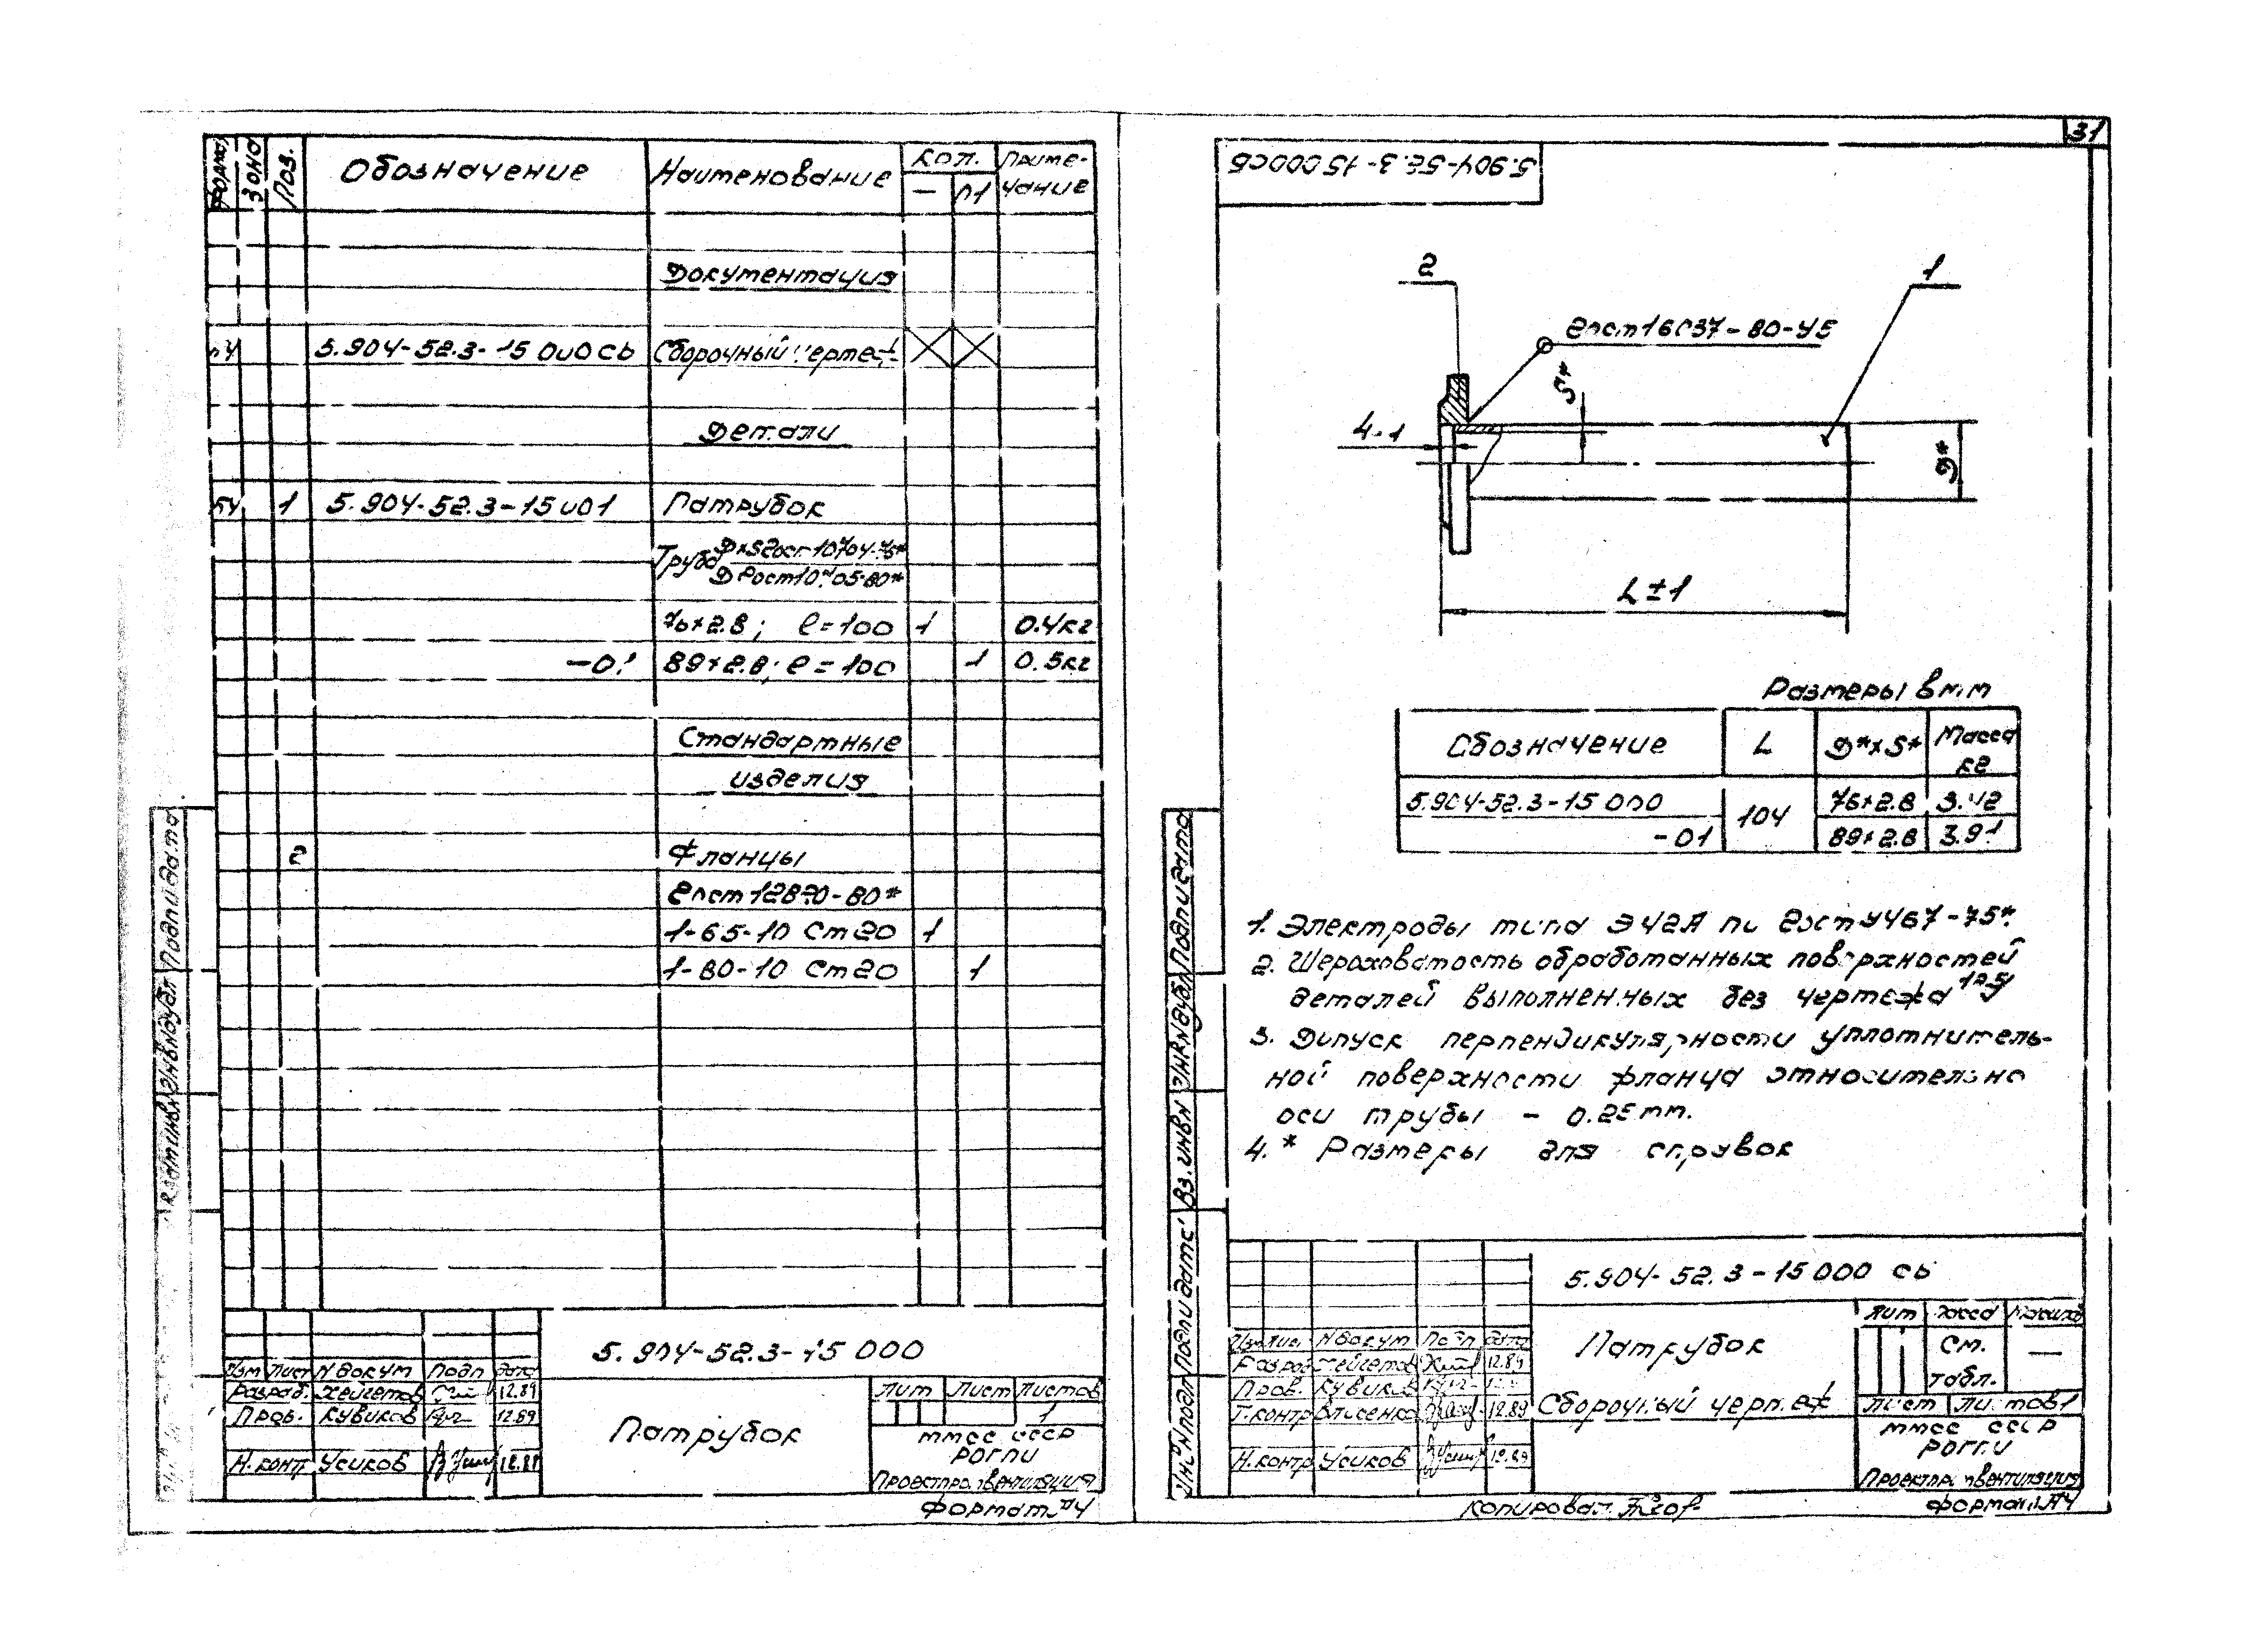 31
Зона Поз. Обозначение Наименование Кол. Приме-
чание
— 01
Документация
5.904-52.3-15 000 СБ Сборочный чертеж
Детали
БЧ 1 5.904-52.3-15 001 Патрубок
Труба D×S Гост 10704-76*
Д Гост 10705-80*
76×2.8; ℓ=100 1 0.4кг
-01 89×2.8; ℓ=100 1 0.5кг
Стандартные
изделия
2 Фланцы
Гост 12820-80*
1-65-10 Ст20 1
1-80-10 Ст20 1
5.904-52.3-15 000
Изм Лист N докум Подп дата
Разраб. 12.89
Пров. Кувиков 12.89
Н.контр Усиков 12.89
Патрубок
Лит Лист Листов
1
ММСС СССР
Проектпромвентиляция
Формат А4
5.904-52.3-15000СБ
2
1
Гост 16037-80-У5
S*
4±1
D*
L±1
Размеры в мм
Обозначение L D*×S* Масса
кг
5.904-52.3-15 000 104 76×2.8 3.42
-01 89×2.8 3.91
1. Электроды типа Э42А по Гост 9467-75*.
2. Шероховатость обработанных поверхностей
деталей выполненных без чертежа 12,5
3. Допуск перпендикулярности уплотнитель-
ной поверхности фланца относительно
оси трубы - 0.25мм.
4.* Размеры для справок
5.904-52.3-15 000 СБ
Изм Лист N докум Подп дата
Разраб 12.89
Пров. Кувиков
Т.контр Власенко 12.89
Н.контр Усиков 12.89
Патрубок
Сборочный чертеж
Лит Масса Масштаб
См.
табл. —
Лист Листов 1
ММСС СССР
Проектпромвентиляция
Копировал Формат А4
Подп и дата
Инв N дубл
Вз. инв N
Подп и дата
Инв N подл